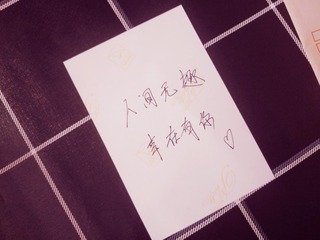 人间无趣
幸在有你♡